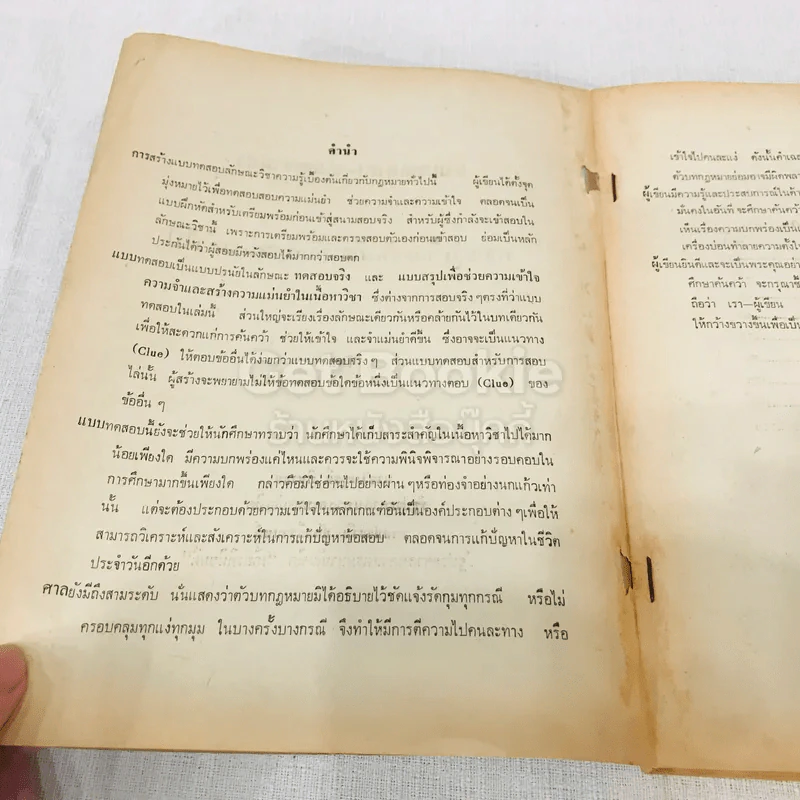 คำนำ
การสร้างแบบทดสอบลักษณะวิชาความรู้เบื้องต้นเกี่ยวกับกฎหมายทั่วไปนี้ ผู้เขียนได้ตั้งจุด
มุ่งหมายไว้เพื่อทดสอบสอบความแม่นยำ ช่วยความจำและความเข้าใจ ตลอดจนเป็น
แบบฝึกหัดสำหรับเตรียมพร้อมก่อนเข้าสู่สนามสอบจริง สำหรับผู้ซึ่งกำลังจะเข้าสอบใน
ลักษณะวิชานี้ เพราะการเตรียมพร้อมและตรวจสอบตัวเองก่อนเข้าสอบ ย่อมเป็นหลัก
ประกันได้ว่าผู้สอบมีหวังสอบได้มากกว่าสอบตก
แบบทดสอบเป็นแบบปรนัยในลักษณะ ทดสอบจริง และ แบบสรุปเพื่อช่วยความเข้าใจ
ความจำและสร้างความแม่นยำในเนื้อหาวิชา ซึ่งต่างจากการสอบจริง ๆ ตรงที่ว่าแบบ
ทดสอบในเล่มนี้ ส่วนใหญ่จะเรียงเรื่องลักษณะเดียวกันหรือคล้ายกันไว้ในบทเดียวกัน
เพื่อให้สะดวกแก่การค้นคว้า ช่วยให้เข้าใจ และจำแม่นยำดีขึ้น ซึ่งอาจจะเป็นแนวทาง
(Clue) ให้ตอบข้ออื่นได้ง่ายกว่าแบบทดสอบจริง ๆ ส่วนแบบทดสอบสำหรับการสอบ
ไล่นั้น ผู้สร้างจะพยายามไม่ให้ข้อทดสอบข้อใดข้อหนึ่งเป็นแนวทางตอบ (Clue) ของ
ข้ออื่น ๆ
แบบทดสอบนี้ยังจะช่วยให้นักศึกษาทราบว่า นักศึกษาได้เก็บสาระสำคัญในเนื้อหาวิชาไปได้มาก
น้อยเพียงใด มีความบกพร่องแค่ไหนและควรจะใช้ความพินิจพิจารณาอย่างรอบคอบใน
การศึกษามากขึ้นเพียงใด กล่าวคือมิใช่อ่านไปอย่างผ่าน ๆ หรือท่องจำอย่างนกแก้วเท่า
นั้น แต่จะต้องประกอบด้วยความเข้าใจในหลักเกณฑ์อันเป็นองค์ประกอบต่าง ๆ เพื่อให้
สามารถวิเคราะห์และสังเคราะห์ในการแก้ปัญหาข้อสอบ ตลอดจนการแก้ปัญหาในชีวิต
ประจำวันอีกด้วย
ศาลยังมีถึงสามระดับ นั่นแสดงว่าตัวบทกฎหมายมิได้อธิบายไว้ชัดแจ้งรัดกุมทุกกรณี หรือไม่
ครอบคลุมทุกแง่ทุกมุม ในบางครั้งบางกรณี จึงทำให้มีการตีความไปคนละทาง หรือ
เข้าใจไปคนละแง่ ดังนั้นคำเฉลย
ตัวบทกฎหมายย่อมอาจมีผิดพลา
ผู้เขียนมีความรู้และประสบการณ์ในด้า
มั่นคงในอันที่ จะศึกษาค้นคว้า
เห็นเรื่องความบกพร่องเป็นเ
เครื่องบ่อนทำลายความตั้งใ
ผู้เขียนยินดีและจะเป็นพระคุณอย่า
ศึกษาค้นคว้า จะกรุณาชี้
ถือว่า เรา—ผู้เขียน
ให้กว้างขวางขึ้นเพื่อเป็น
Get Bookie
ร้านหนังสือบุ๊กกี้